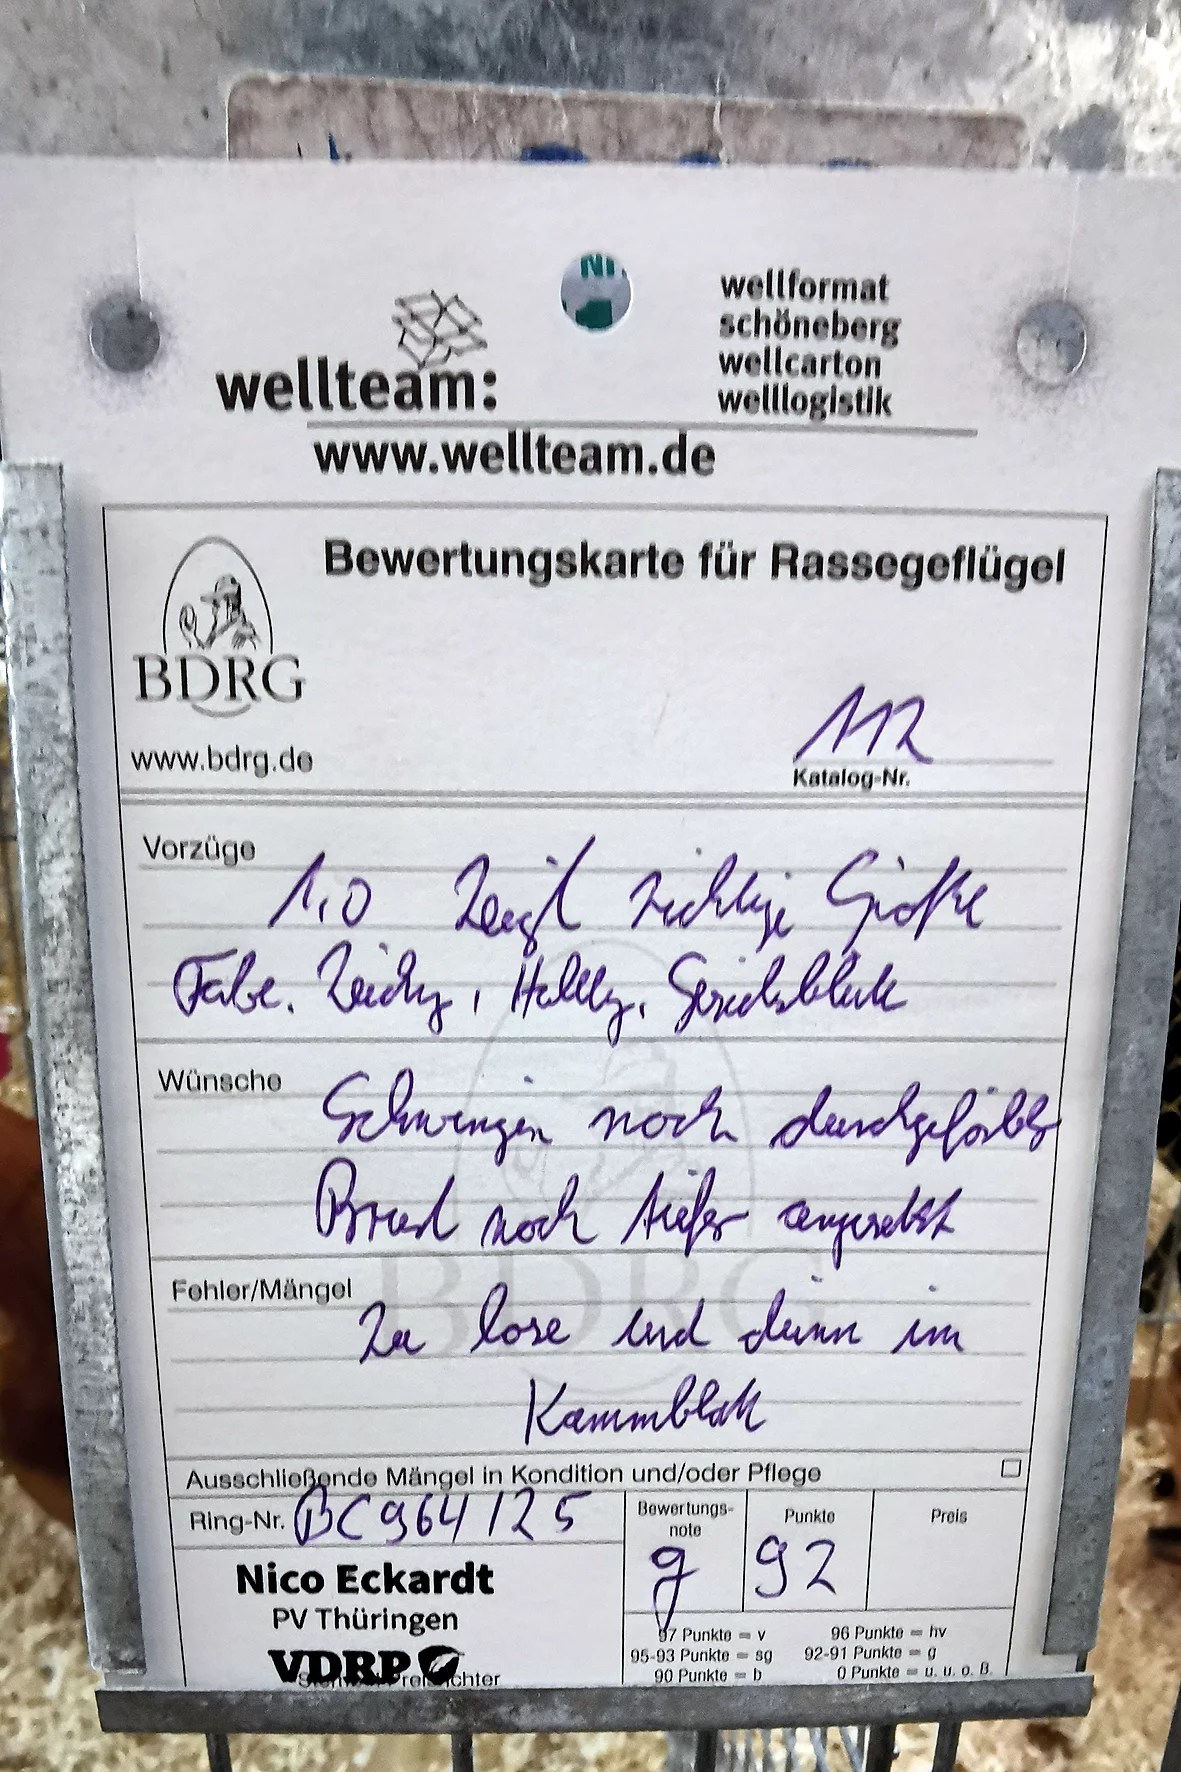 NI
wellteam:
wellformat
schöneberg
wellcarton
welllogistik
www.wellteam.de
Bewertungskarte für Rassegeflügel
BDRG
www.bdrg.de
112
Katalog-Nr.
Vorzüge
1,0 Zeigt richtige Größe
Farbe. Zeichg, Haltg, Gesichtsblüte
Wünsche
Schwingen noch durchgefärbter
Brust noch tiefer angesetzt
Fehler/Mängel
Zu lose und dünn im
Kammblatt
BDRG
Ausschließende Mängel in Kondition und/oder Pflege
Ring-Nr. BC964/25
Bewertungs-
note
g
Punkte
92
Preis
Nico Eckardt
PV Thüringen
VDRP
97 Punkte = v 96 Punkte = hv
95-93 Punkte = sg 92-91 Punkte = g
90 Punkte = b 0 Punkte = u. u. o. B.